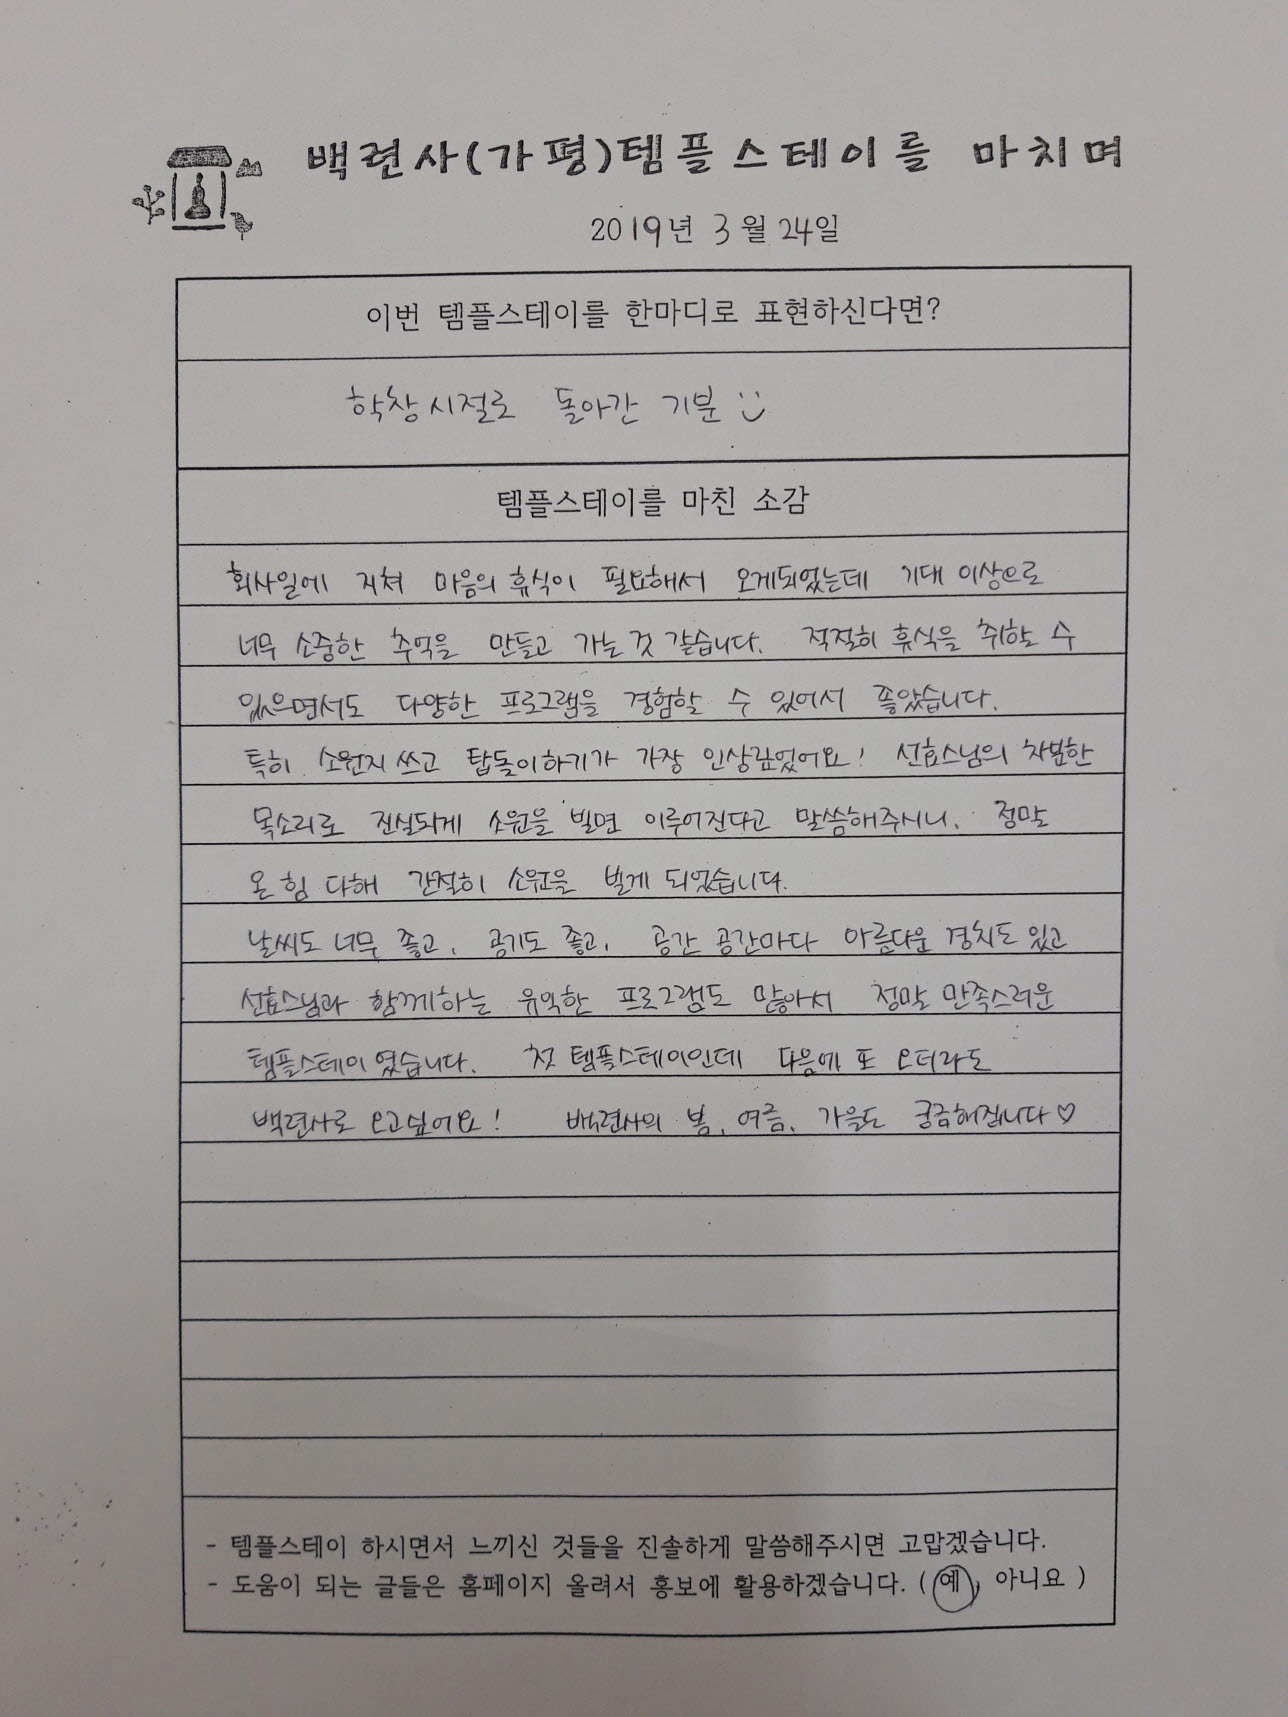 백련사(가평)템플스테이를 마치며
2019년 3월 24일
이번 템플스테이를 한마디로 표현하신다면?
학창시절로 돌아간 기분 :)
템플스테이를 마친 소감
회사일에 지쳐 마음의 휴식이 필요해서 오게되었는데 기대 이상으로
너무 소중한 추억을 만들고 가는 것 같습니다. 적절히 휴식을 취할 수
있으면서도 다양한 프로그램을 경험할 수 있어서 좋았습니다.
특히 소원지 쓰고 탑돌이하기가 가장 인상깊었어요! 선효스님의 차분한
목소리로 진실되게 소원을 빌면 이루어진다고 말씀해주시니, 정말
온 힘 다해 간절히 소원을 빌게 되었습니다.
날씨도 너무 좋고, 공기도 좋고, 공간 공간마다 아름다운 경치도 있고
선효스님과 함께하는 유익한 프로그램도 많아서 정말 만족스러운
템플스테이였습니다. 첫 템플스테이인데 다음에 또 오더라도
백련사로 오고싶어요! 백련사의 봄, 여름, 가을도 궁금해집니다♡
- 템플스테이 하시면서 느끼신 것들을 진솔하게 말씀해주시면 고맙겠습니다.
- 도움이 되는 글들은 홈페이지 올려서 홍보에 활용하겠습니다. ( 예, 아니요 )